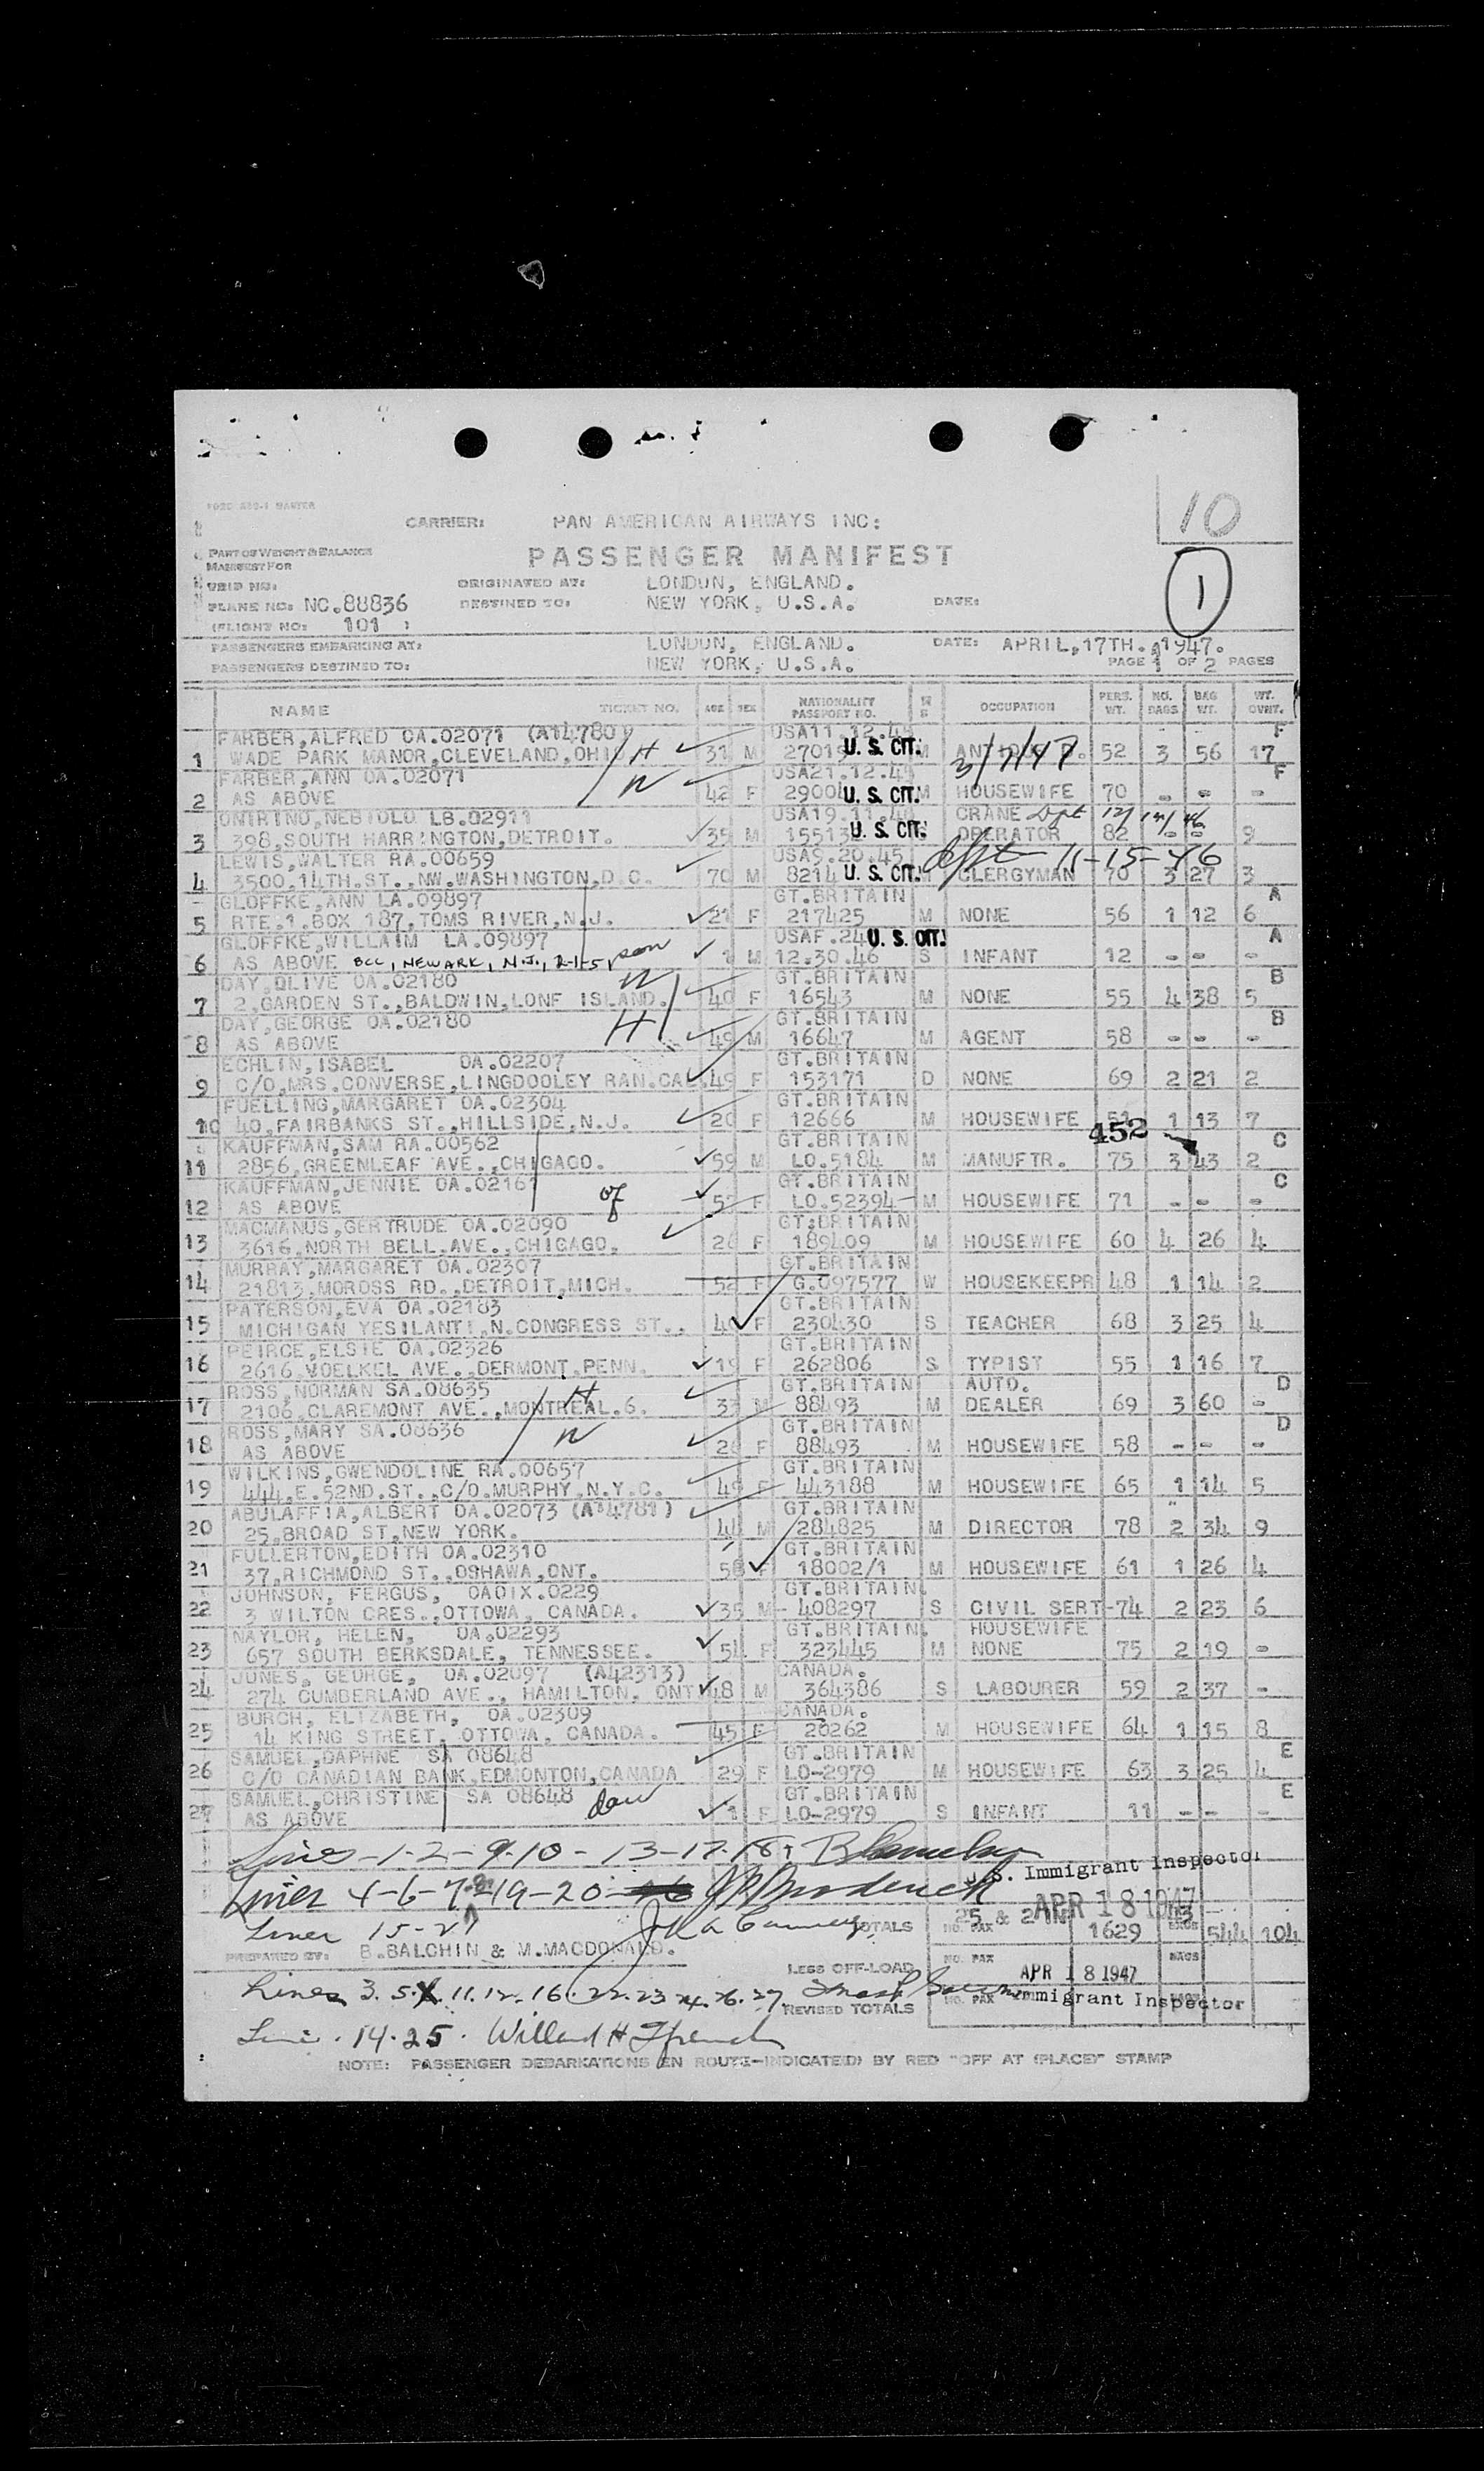 10
CARRIER: PAN AMERICAN AIRWAYS INC:
PART OF WEIGHT & BALANCE
MANIFEST FOR
PASSENGER MANIFEST
1
TRIP NO:
ORIGINATED AT: LONDON, ENGLAND.
PLANE NO: NC.88836
DESTINED TO: NEW YORK, U.S.A. DATE:
(FLIGHT NO: 101 )
PASSENGERS EMBARKING AT: LONDON, ENGLAND. DATE: APRIL,17TH. 1947.
PASSENGERS DESTINED TO: NEW YORK, U.S.A. PAGE 1 OF 2 PAGES
NAME TICKET NO. AGE SEX NATIONALITY PASSPORT NO. OCCUPATION PERS. WT. NO. BAGS BAG WT. WT. OVWT.
FARBER,ALFRED OA.02071 (A14780) USA11.12.45 F
1 WADE PARK MANOR,CLEVELAND,OHIO H 31 M 27019 U. S. CIT. M 3/7/47 52 3 56 17
FARBER,ANN OA.02071 W USA21.12.4 F
2 AS ABOVE 42 F 2900 U. S. CIT. M HOUSEWIFE 70 - - -
ONTRINO,NEBIOLO LB.02911 USA19.11.46 CRANE Dept 12/17/46
3 398,SOUTH HARRINGTON,DETROIT. 39 M 15513 U. S. CIT. OPERATOR 82 - - 9
LEWIS,WALTER RA.00659 USA9.20.45 dept 11-15-46
4 3500,14TH.ST.,NW.WASHINGTON,D.C. 70 M 8214 U. S. CIT. M CLERGYMAN 70 3 27 3
GLOFFKE,ANN LA.09897 GT.BRITAIN A
5 RTE.1.BOX 187,TOMS RIVER,N.J. 21 F 217425 M NONE 56 1 12 6
GLOFFKE,WILLAIM LA.09897 USAF.24 U. S. CIT. A
6 AS ABOVE BCC, NEWARK, N.J., 2-1-51 son 1 M 12.30.46 S INFANT 12 - - -
DAY,OLIVE OA.02180 W GT.BRITAIN B
7 2,GARDEN ST.,BALDWIN,LONF ISLAND. 40 F 16543 M NONE 55 4 38 5
DAY,GEORGE OA.02180 H GT.BRITAIN B
8 AS ABOVE 49 M 16647 M AGENT 58 - - -
ECHLIN,ISABEL OA.02207 GT.BRITAIN
9 C/O,MRS.CONVERSE,LINGDOOLEY RAN.CAL. 49 F 153171 D NONE 69 2 21 2
FUELLING,MARGARET OA.02304 GT.BRITAIN
10 40,FAIRBANKS ST.,HILLSIDE,N.J. 20 F 12666 M HOUSEWIFE 51 1 13 7
452
KAUFFMAN,SAM RA.00562 GT.BRITAIN C
11 2856,GREENLEAF AVE.,CHICAGO. 59 M LO.5184 M MANUFTR. 75 3 43 2
KAUFFMAN,JENNIE OA.02161 GT.BRITAIN C
12 AS ABOVE 57 F LO.52394 M HOUSEWIFE 71 - - -
MACMANUS,GERTRUDE OA.02090 GT.BRITAIN
13 3616,NORTH BELL,AVE.,CHICAGO. 26 F 189409 M HOUSEWIFE 60 4 26 4
MURRAY,MARGARET OA.02307 GT.BRITAIN
14 21813,MOROSS RD.,DETROIT,MICH. 52 F G.097577 W HOUSEKEEPR 48 1 14 2
PATERSON,EVA OA.02183 GT.BRITAIN
15 MICHIGAN YESILANTI,N.CONGRESS ST., 40 F 230430 S TEACHER 68 3 25 4
PEIRCE,ELSIE OA.02326 GT.BRITAIN
16 2616,VOELKEL AVE.,DERMONT,PENN. 19 F 262806 S TYPIST 55 1 16 7
ROSS,NORMAN SA.08635 H GT.BRITAIN AUTO. D
17 2106,CLAREMONT AVE.,MONTREAL.6. 33 M 88493 M DEALER 69 3 60 -
ROSS,MARY SA.08636 W GT.BRITAIN D
18 AS ABOVE 26 F 88493 M HOUSEWIFE 58 - - -
WILKINS,GWENDOLINE RA.00657 GT.BRITAIN
19 444,E.52ND.ST.,C/O.MURPHY,N.Y.C. 49 F 443188 M HOUSEWIFE 65 1 14 5
ABULAFFIA,ALBERT OA.02073 (A14781) GT.BRITAIN
20 25,BROAD ST,NEW YORK. 44 M 284825 M DIRECTOR 78 2 34 9
FULLERTON,EDITH OA.02310 GT.BRITAIN
21 37,RICHMOND ST.,OSHAWA,ONT. 58 F 18002/1 M HOUSEWIFE 61 1 26 4
JOHNSON, FERGUS, OAOIX.0229 GT.BRITAIN.
22 3 WILTON CRES.,OTTOWA, CANADA. 35 M 408297 S CIVIL SERT 74 2 23 6
NAYLOR, HELEN, OA.02293 GT.BRITAIN. HOUSEWIFE
23 657 SOUTH BERKSDALE, TENNESSEE. 54 F 323445 M NONE 75 2 19 -
JONES, GEORGE, OA.02097 (A42313) CANADA.
24 274 CUMBERLAND AVE., HAMILTON. ONT 48 M 364386 S LABOURER 59 2 37 -
BURCH, ELIZABETH, OA.02309 CANADA.
25 14 KING STREET, OTTOWA, CANADA. 45 F 20262 M HOUSEWIFE 64 1 15 8
SAMUEL,DAPHNE SA 08648 GT.BRITAIN E
26 C/O CANADIAN BANK,EDMONTON,CANADA 29 F LO-2979 M HOUSEWIFE 63 3 25 4
SAMUEL,CHRISTINE SA 08648 dau GT.BRITAIN E
27 AS ABOVE 1 F LO-2979 S INFANT 11 - - -
Lines -1-2-9-10-13-17-18
U.S. Immigrant Inspector
Lines 4-6-7-8-19-20
APR 18 1947
Line 15-21
TOTALS NO. PAX 25 & 2 IN 1629 544 104
PREPARED BY: B.BALCHIN & M.MACDONALD.
LESS OFF-LOAD NO. PAX BAGS
APR 18 1947
Lines 3.5.11.12.16.22.23.24.26.27
REVISED TOTALS NO. PAX Immigrant Inspector
Line. 14.25. Willard H French
NOTE: PASSENGER DEBARKATIONS EN ROUTE-INDICATED BY RED "OFF AT (PLACE)" STAMP